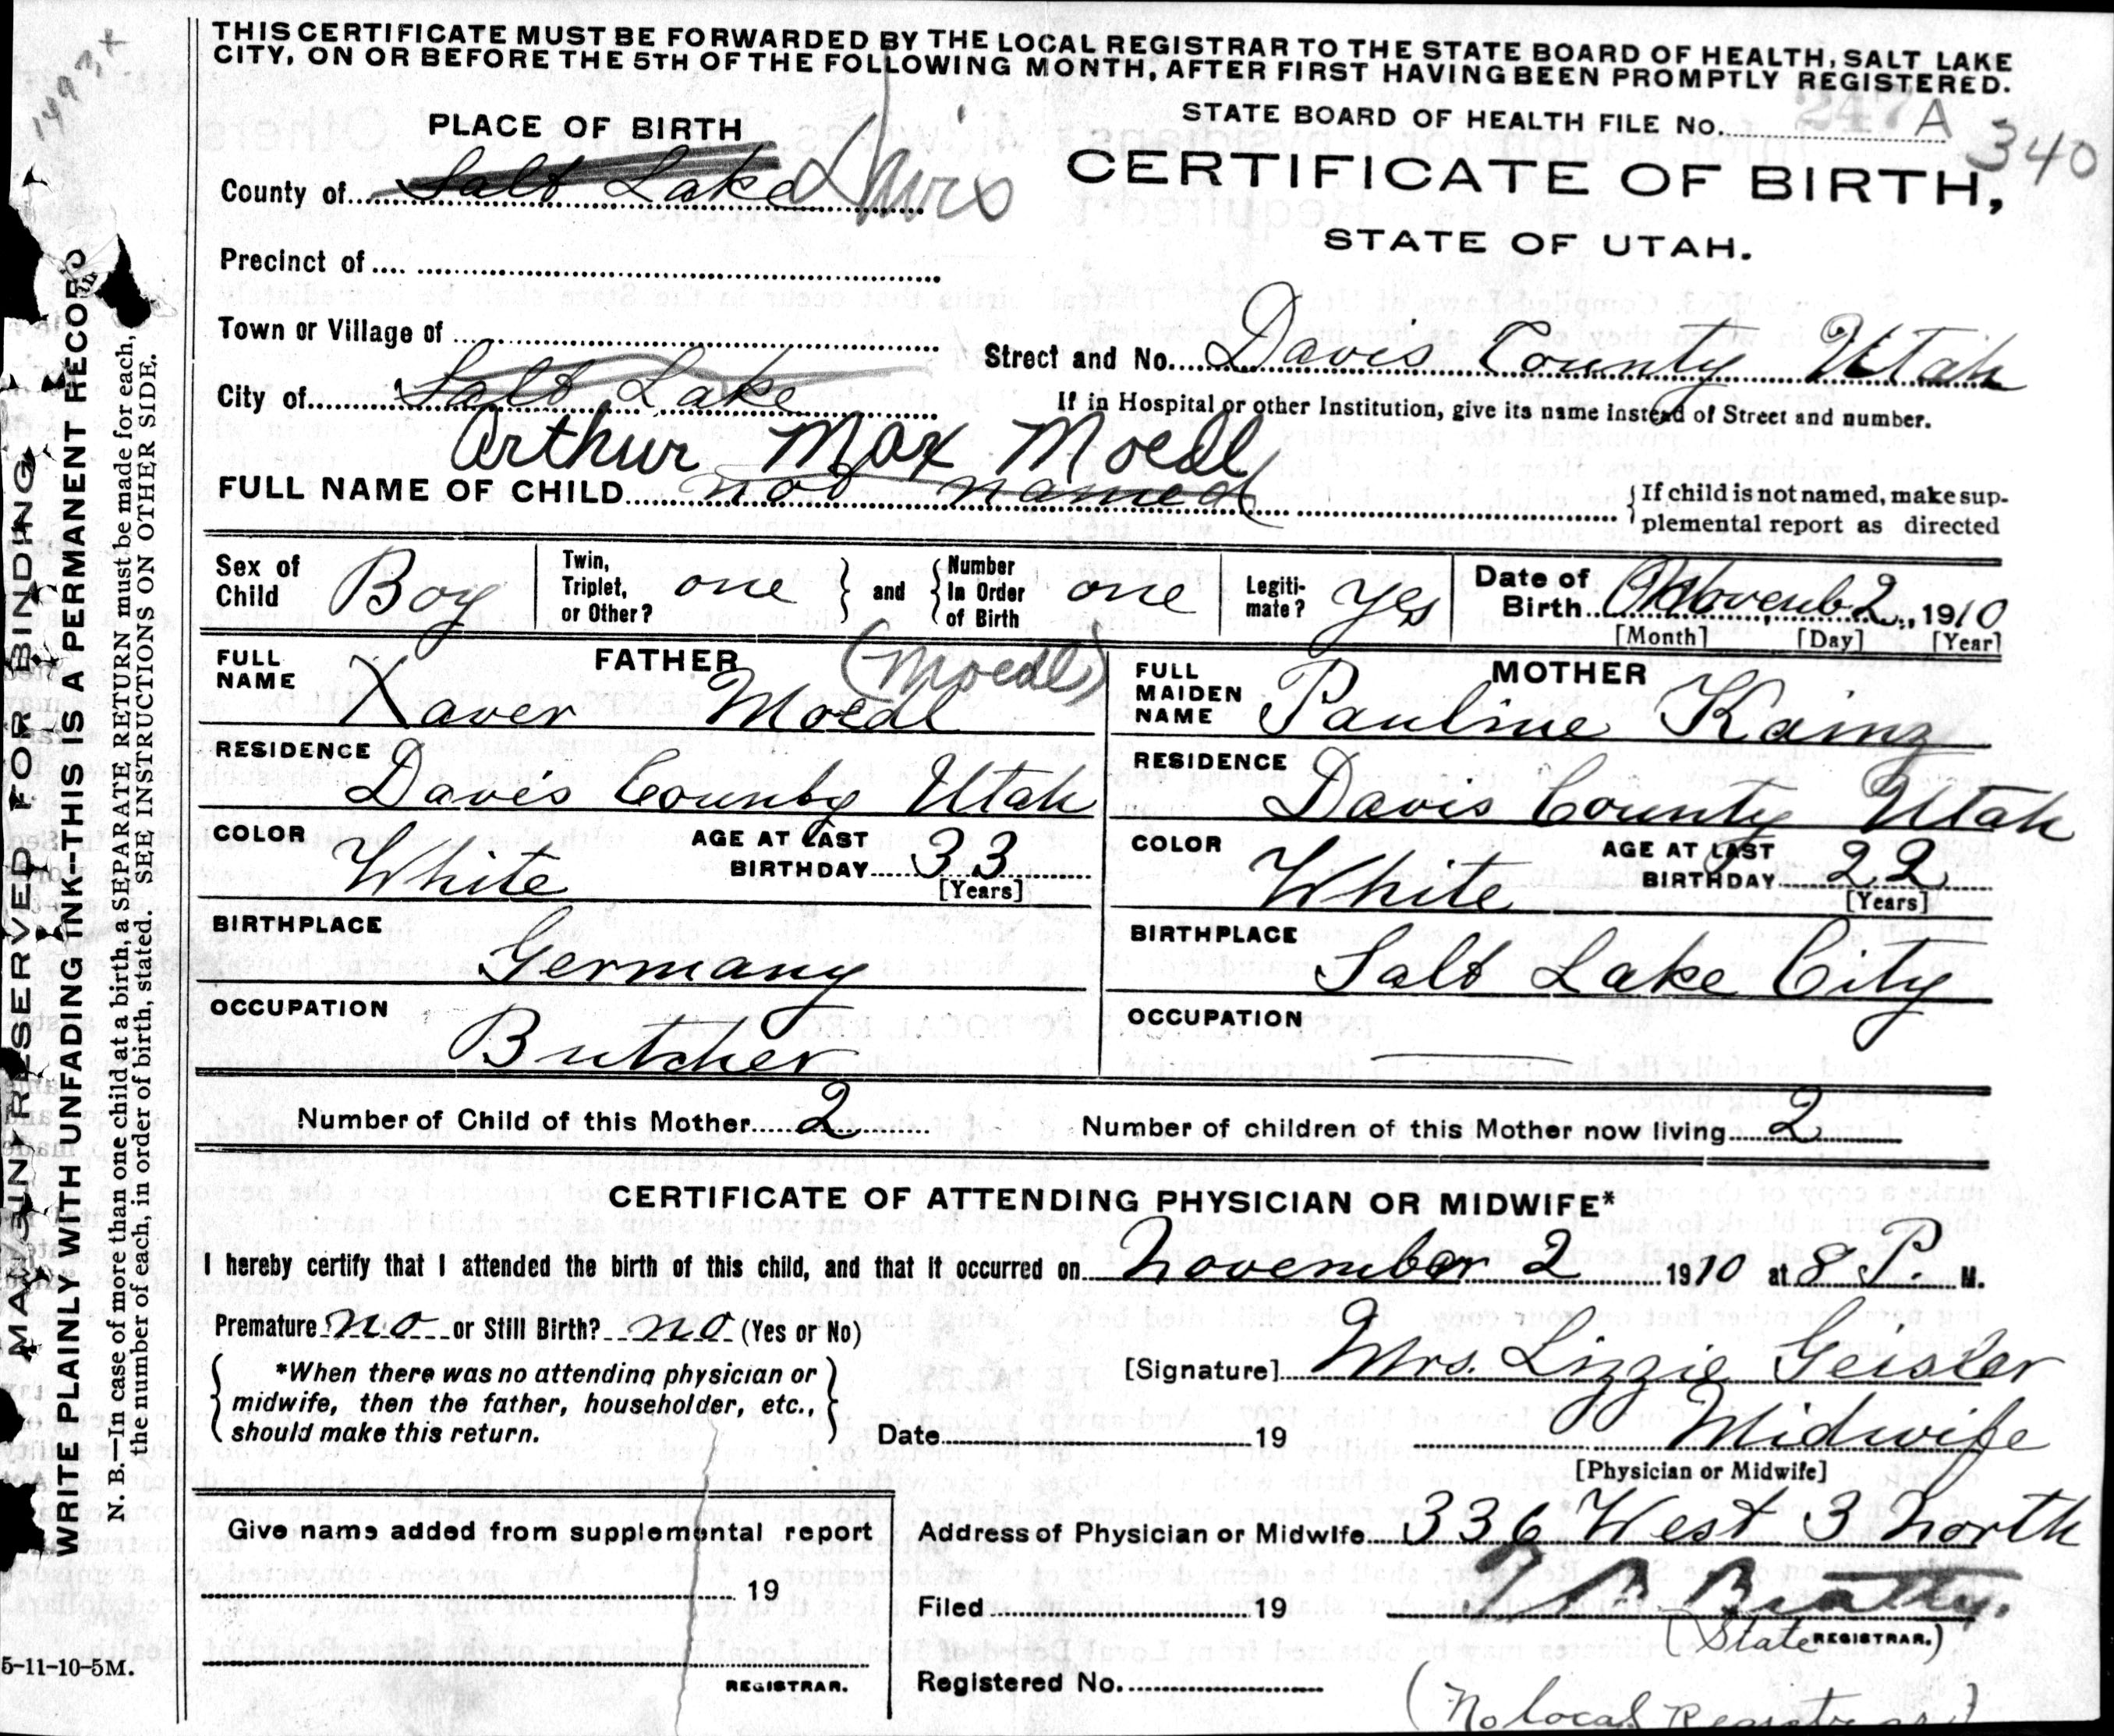 THIS CERTIFICATE MUST BE FORWARDED BY THE LOCAL REGISTRAR TO THE STATE BOARD OF HEALTH, SALT LAKE
CITY, ON OR BEFORE THE 5TH OF THE FOLLOWING MONTH, AFTER FIRST HAVING BEEN PROMPTLY REGISTERED.
STATE BOARD OF HEALTH FILE No. 247 A
340
PLACE OF BIRTH
CERTIFICATE OF BIRTH,
STATE OF UTAH.
County of Salt Lake Davis
Precinct of
Town or Village of
Street and No. Davis County Utah
City of Salt Lake
If in Hospital or other Institution, give its name instead of Street and number.
Arthur Max Moedl
FULL NAME OF CHILD not named
If child is not named, make sup-
plemental report as directed
Sex of Child Boy
Twin, Triplet, or Other? one and Number In Order of Birth one
Legiti-mate? Yes
Date of Birth Novemb 2, 1910
[Month] [Day] [Year]
FATHER
FULL NAME Xaver Moedl (Moedl)
RESIDENCE Davis County Utah
COLOR White AGE AT LAST BIRTHDAY 33 [Years]
BIRTHPLACE Germany
OCCUPATION Butcher
MOTHER
FULL MAIDEN NAME Pauline Kainz
RESIDENCE Davis County Utah
COLOR White AGE AT LAST BIRTHDAY 22 [Years]
BIRTHPLACE Salt Lake City
OCCUPATION —
Number of Child of this Mother 2 Number of children of this Mother now living 2
CERTIFICATE OF ATTENDING PHYSICIAN OR MIDWIFE*
I hereby certify that I attended the birth of this child, and that it occurred on November 2 1910 at 8 P. M.
Premature no or Still Birth? no (Yes or No)
*When there was no attending physician or
midwife, then the father, householder, etc.,
should make this return.
[Signature] Mrs. Lizzie Geisler
Date 19 Midwife
[Physician or Midwife]
Give name added from supplemental report
19
REGISTRAR.
Address of Physician or Midwife 336 West 3 North
Filed 19 T B Beatty.
(State REGISTRAR.)
Registered No.
(No local Registrar)
MARGIN RESERVED FOR BINDING
WRITE PLAINLY WITH UNFADING INK--THIS IS A PERMANENT RECORD
N. B.—In case of more than one child at a birth, a SEPARATE RETURN must be made for each,
the number of each, in order of birth, stated. SEE INSTRUCTIONS ON OTHER SIDE.
5-11-10-5M.